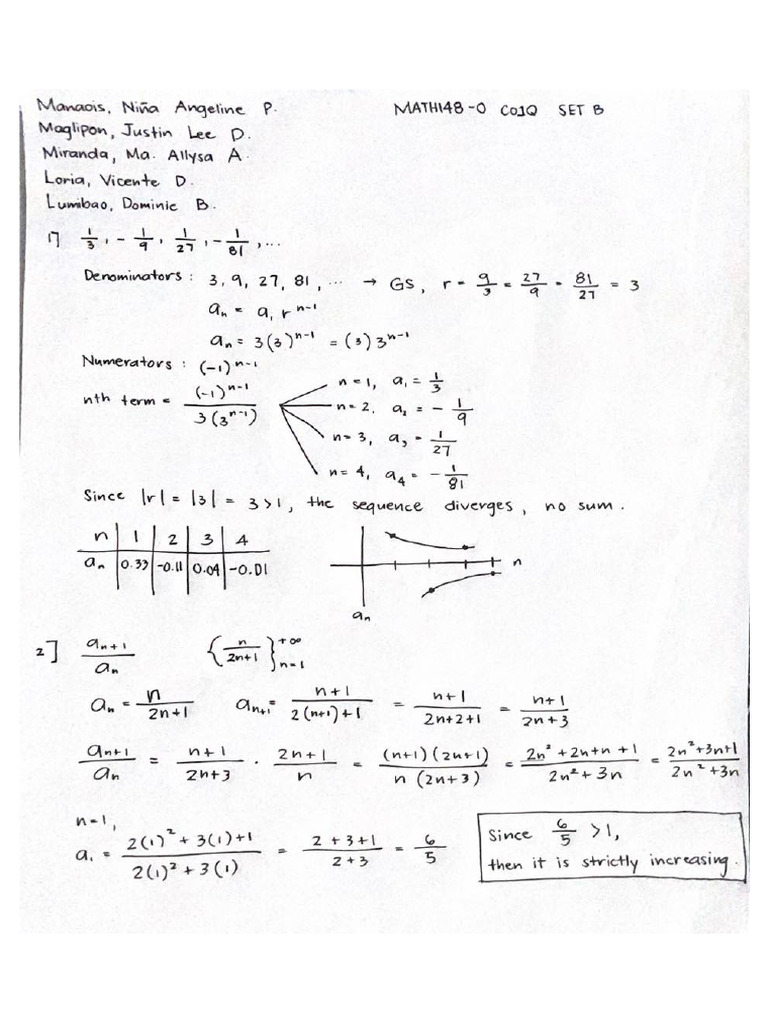 Manaois, Niña Angeline P. MATH148-O CO1Q SET B
Maglipon, Justin Lee D.
Miranda, Ma. Allysa A.
Loria, Vicente D.
Lumibao, Dominic B.
1] 1/3, -1/9, 1/27, -1/81, ...
Denominators: 3, 9, 27, 81, ... → GS, r = 9/3 = 27/9 = 81/27 = 3
aₙ = a₁ rⁿ⁻¹
aₙ = 3(3)ⁿ⁻¹ = (3)3ⁿ⁻¹
Numerators: (-1)ⁿ⁻¹
nth term = (-1)ⁿ⁻¹ / 3(3ⁿ⁻¹)
n=1, a₁ = 1/3
n=2, a₂ = -1/9
n=3, a₃ = 1/27
n=4, a₄ = -1/81
Since |r| = |3| = 3 > 1, the sequence diverges, no sum.
n 1 2 3 4
aₙ 0.33 -0.11 0.04 -0.01
n
aₙ
2] aₙ₊₁/aₙ {n/(2n+1)}ₙ₌₁^+∞
aₙ = n/(2n+1) aₙ₊₁ = (n+1)/(2(n+1)+1) = (n+1)/(2n+2+1) = (n+1)/(2n+3)
aₙ₊₁/aₙ = (n+1)/(2n+3) · (2n+1)/n = (n+1)(2n+1)/(n(2n+3)) = (2n²+2n+n+1)/(2n²+3n) = (2n²+3n+1)/(2n²+3n)
n=1,
a₁ = (2(1)²+3(1)+1)/(2(1)²+3(1)) = (2+3+1)/(2+3) = 6/5
Since 6/5 > 1,
then it is strictly increasing.